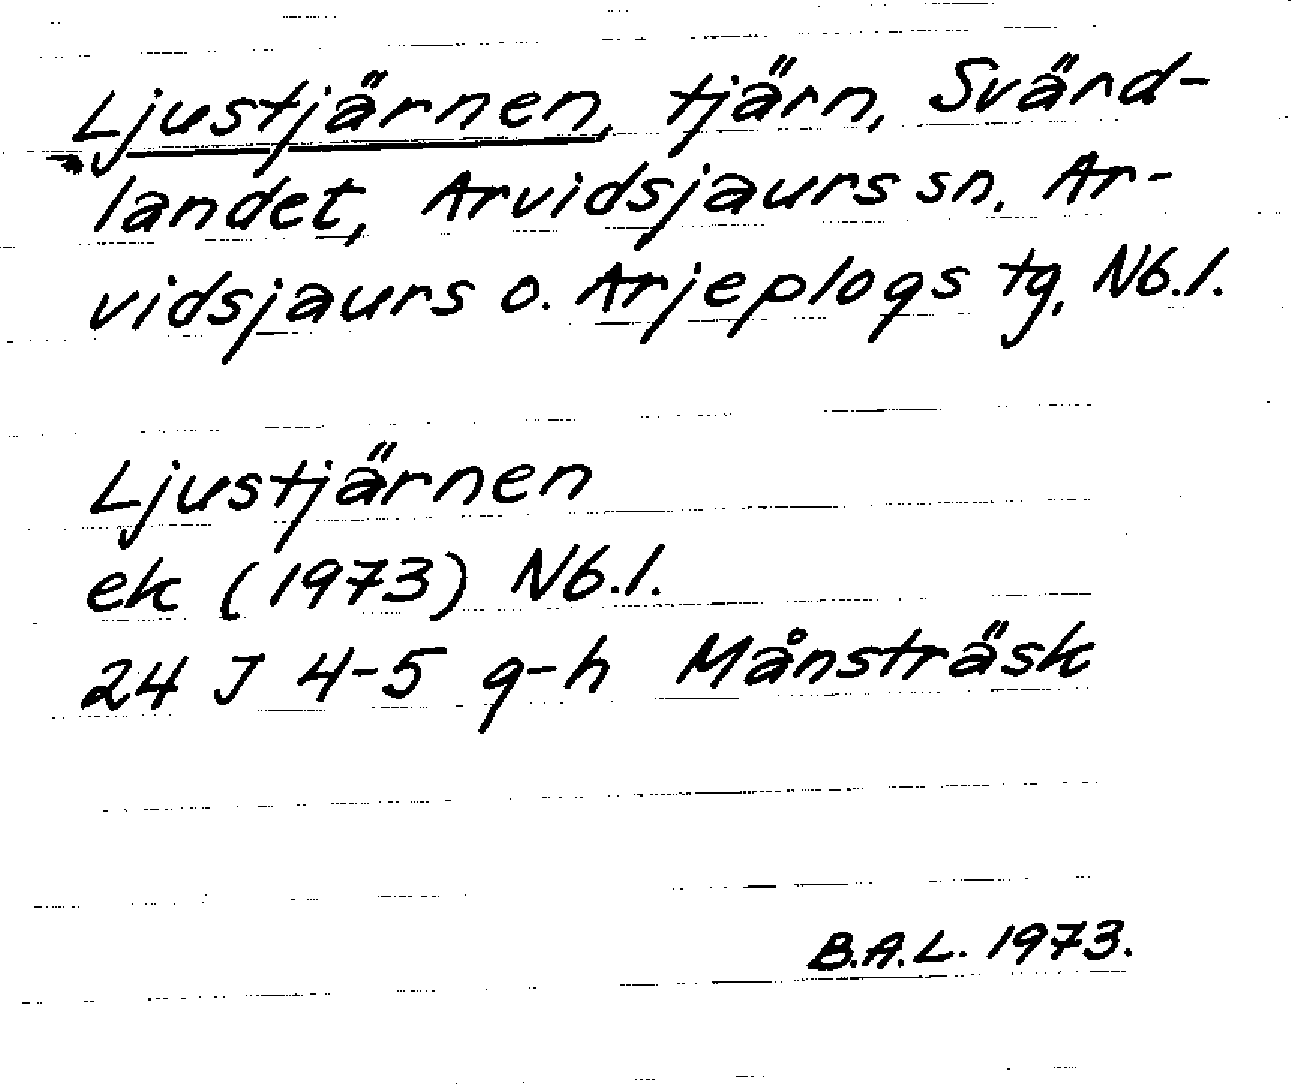 Ljustjärnen, tjärn, Svärd-
landet, Arvidsjaurs sn. Ar-
vidsjaurs o. Arjeplogs tg, Nb.l.
Ljustjärnen
ek (1973) Nb.l.
24 J 4-5 g-h Månsträsk
B.A.L. 1973.